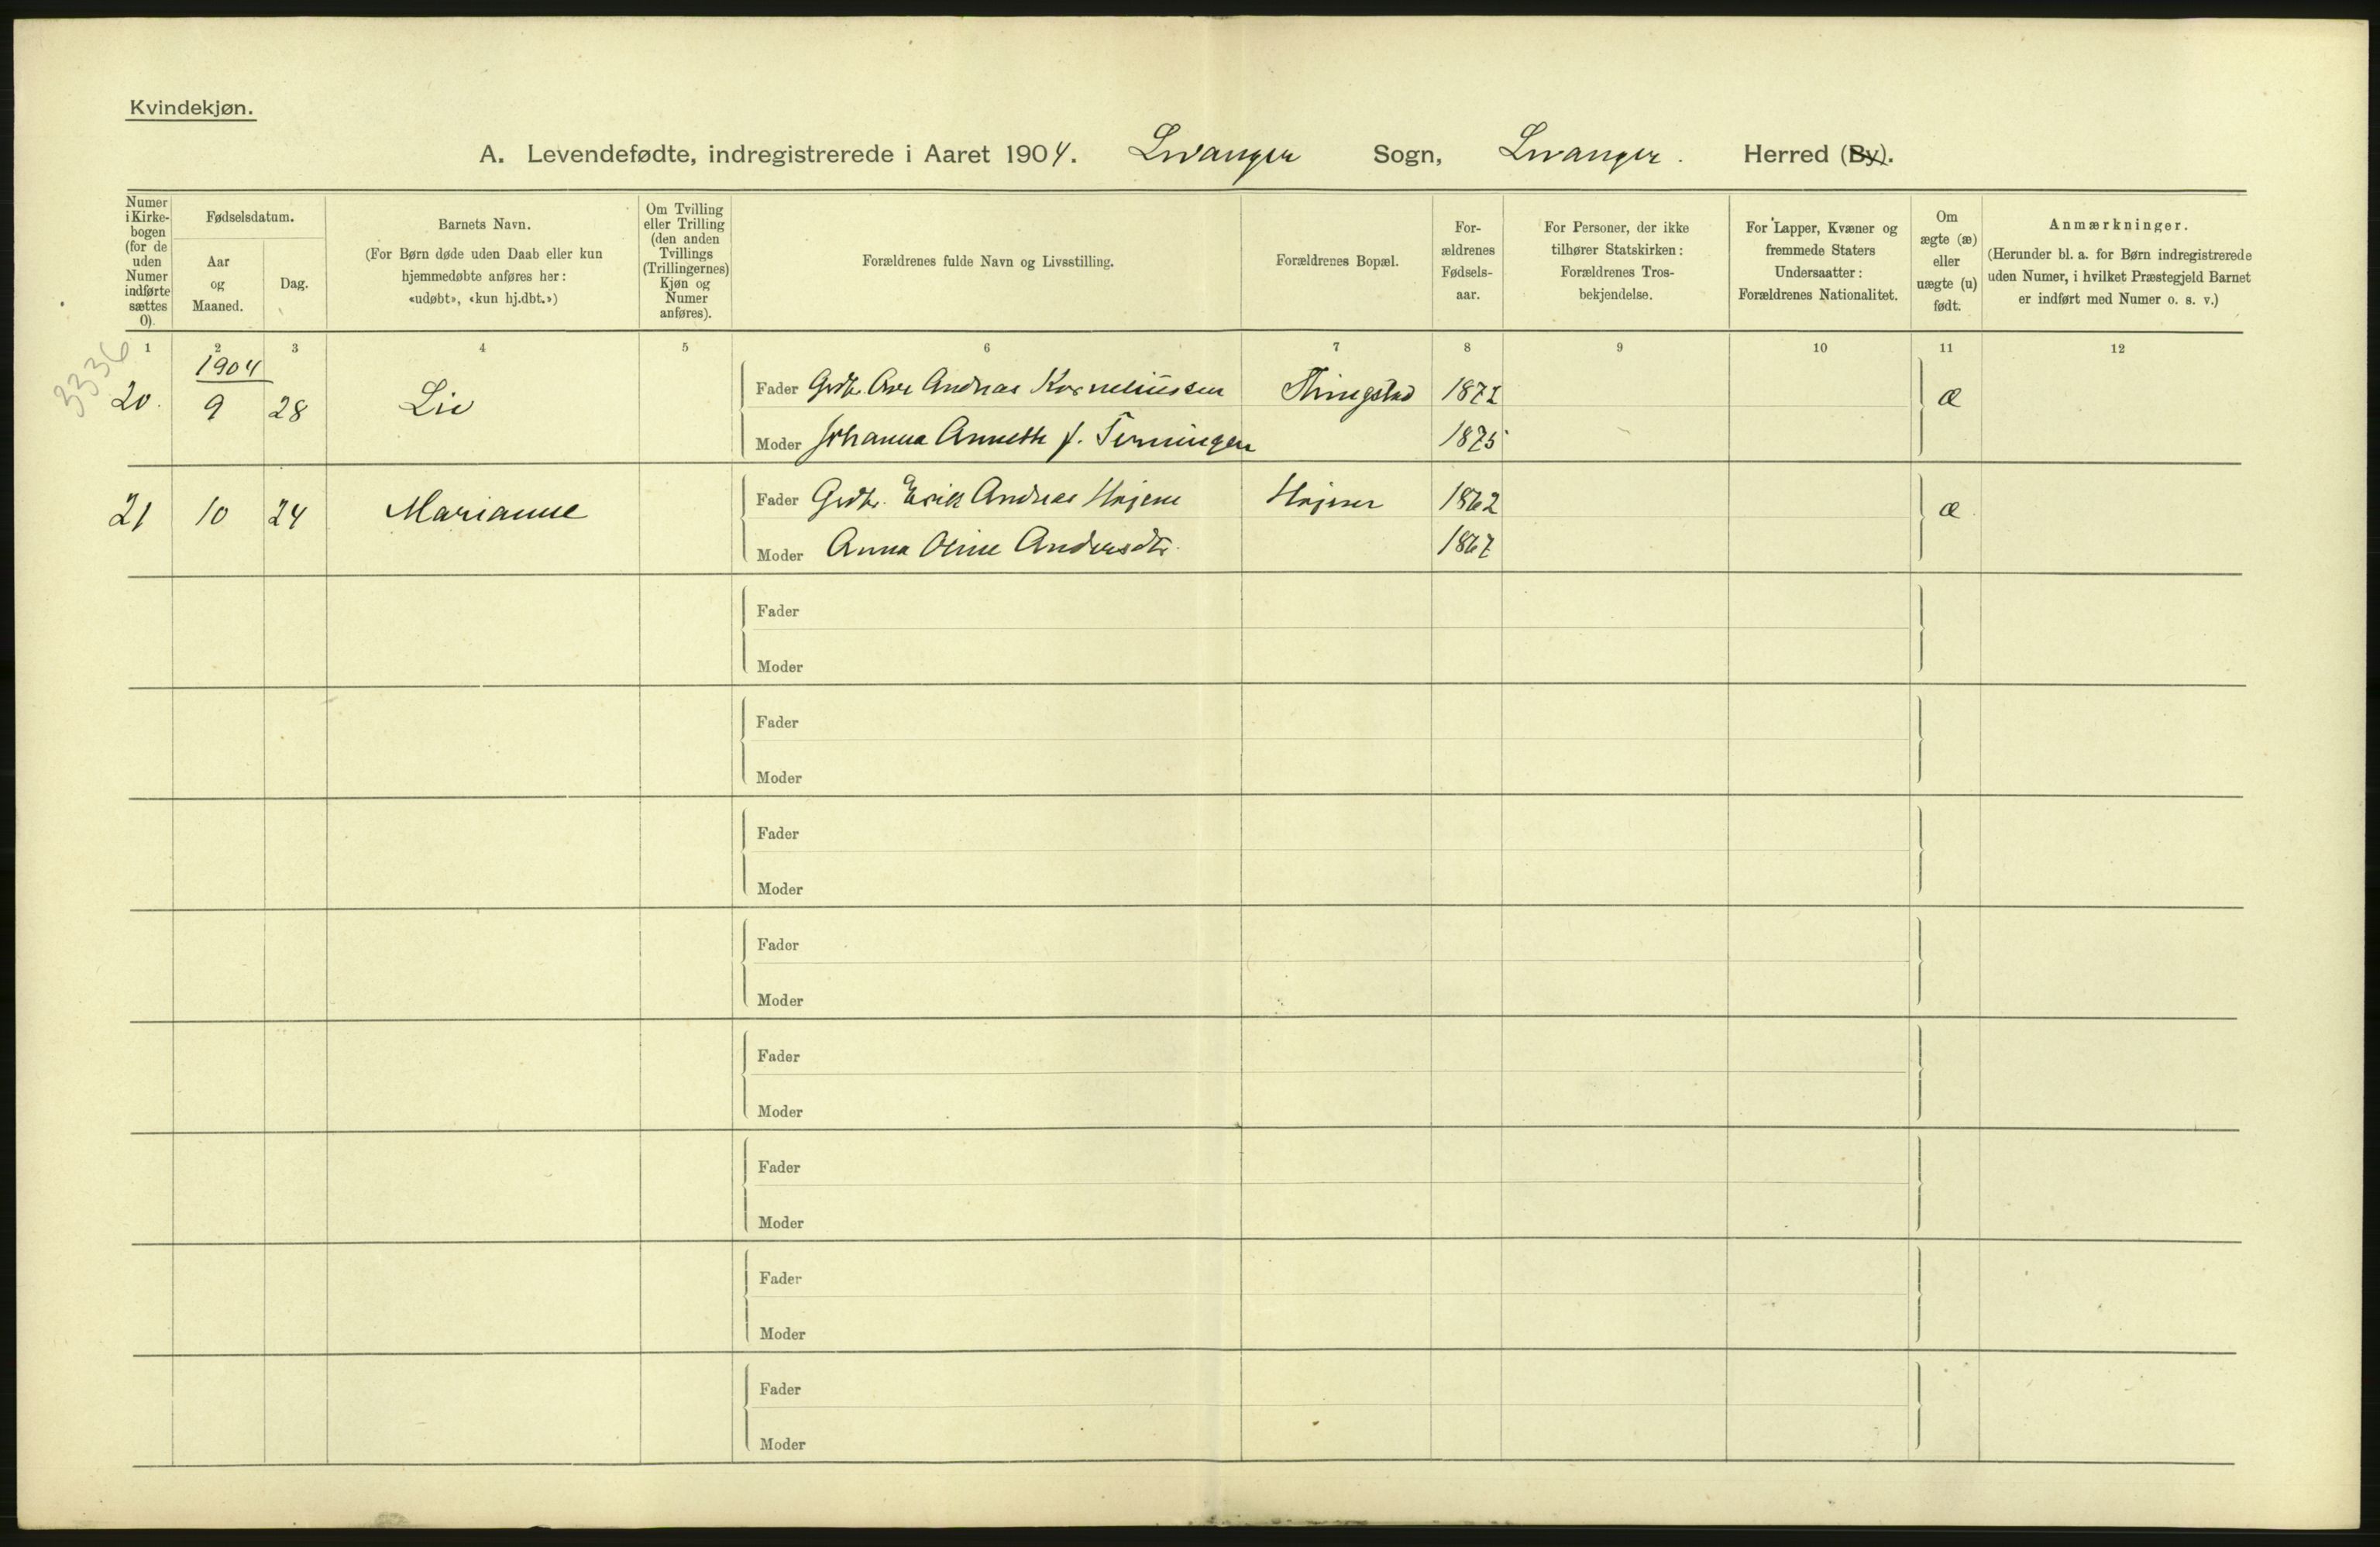 Kvindekjøn.
A. Levendefødte, indregistrerede i Aaret 1904. Levanger Sogn, Levanger. Herred (By).
Numer i Kirke-bogen (for de uden Numer indførte sættes 0).
Fødselsdatum.
Aar og Maaned.
Dag.
Barnets Navn.
(For Børn døde uden Daab eller kun hjemmedøbte anføres her: «udøbt», «kun hj.dbt.»)
Om Tvilling eller Trilling (den anden Tvillings (Trillingernes) Kjøn og Numer anføres).
Forældrenes fulde Navn og Livsstilling.
Forældrenes Bopæl.
For-ældrenes Fødsels-aar.
For Personer, der ikke tilhører Statskirken: Forældrenes Tros-bekjendelse.
For Lapper, Kvæner og fremmede Staters Undersaatter: Forældrenes Nationalitet.
Om ægte (æ) eller uægte (u) født.
Anmærkninger.
(Herunder bl. a. for Børn indregistrerede uden Numer, i hvilket Præstegjeld Barnet er indført med Numer o. s. v.)
1 2 3 4 5 6 7 8 9 10 11 12
3336
1904
20. 9 28 Liv Fader Grdbr. Andreas Korneliussen 1872 æ
Moder Johanna Annette f. 1875
21 10 24 Marianne Fader Grdbr. Erik Andreas 1862 æ
Moder Anna Oline Andersdtr. 1867
Fader
Moder
Fader
Moder
Fader
Moder
Fader
Moder
Fader
Moder
Fader
Moder
Fader
Moder
Fader
Moder